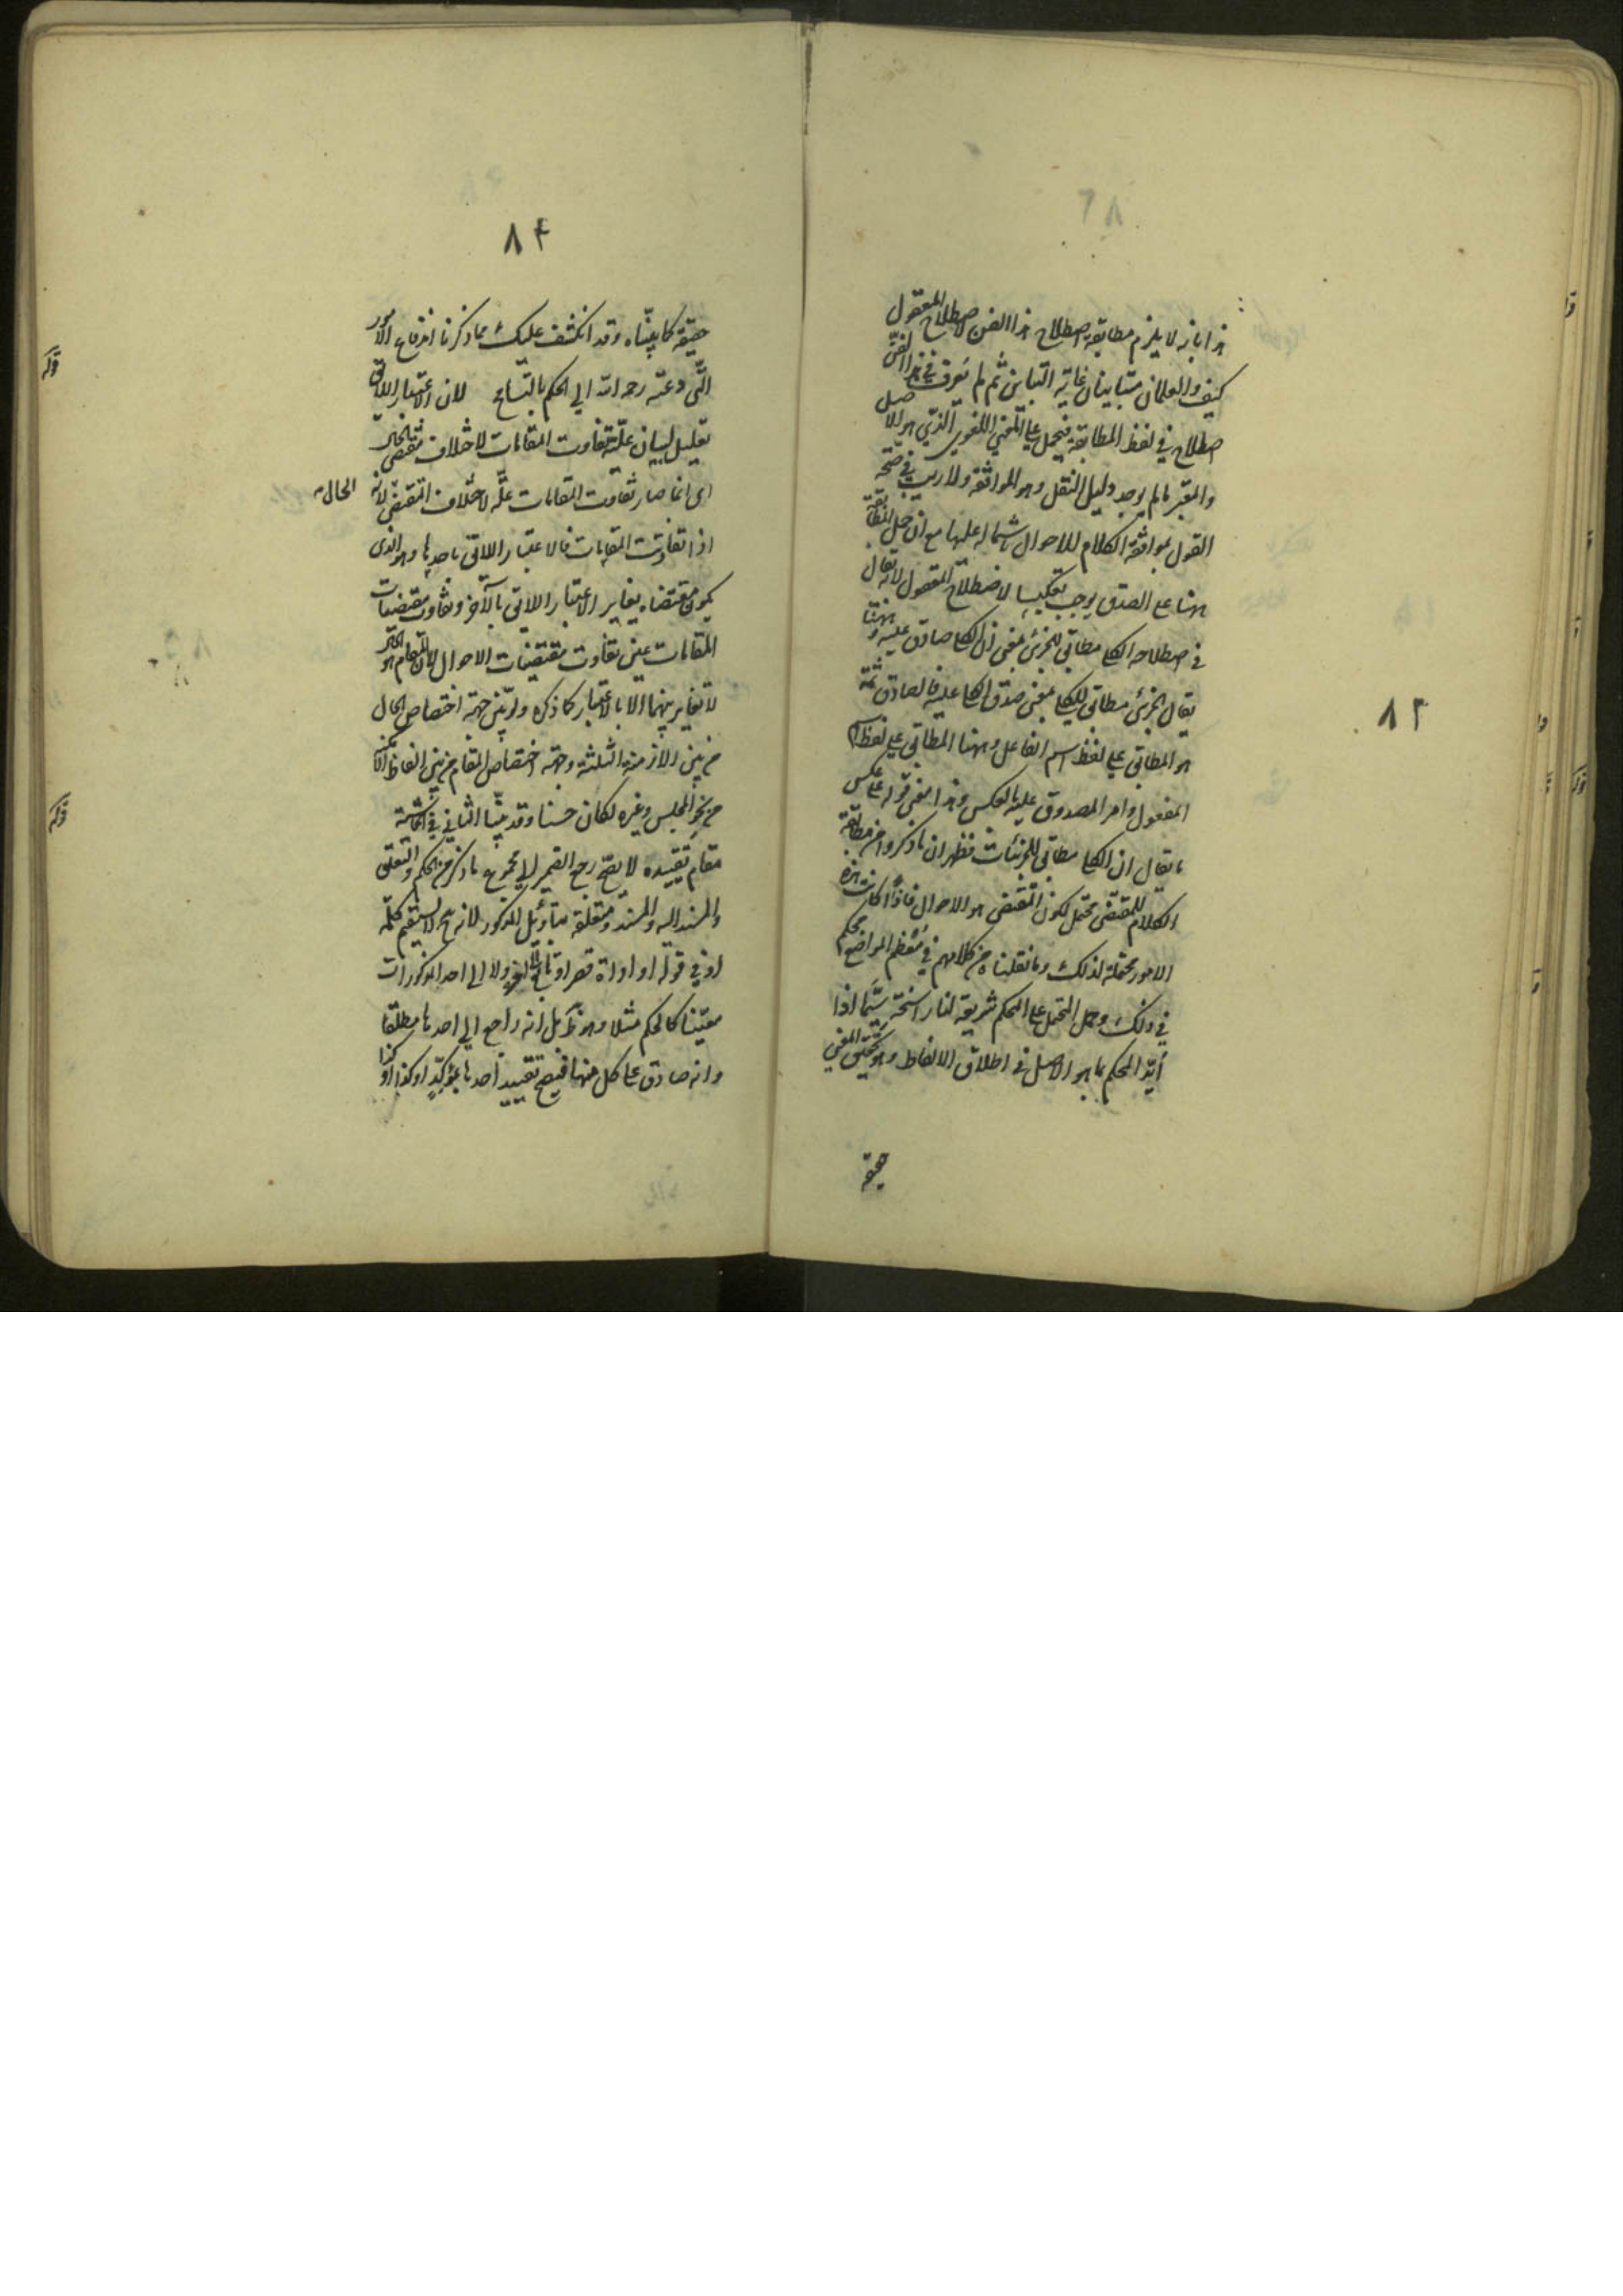 هذا بانه لا يلزم مطابقة اصطلاح هذا الفن لاصطلاح المعقول
كيف والعلمان متباينان غاية التباين ثم لم يعرف في هذا الفن
اصطلاح في لفظ المطابقة فيحمل على المعنى اللغوي الذي هو الاصل
والمعتبر ما لم يوجد دليل النقل وهو الموافقة ولا ريب في صحة
القول بموافقة الكلام للاحوال شماله عليها مع ان حمل المطابقة
ههنا على الصدق يوجب تعكيسا لاصطلاح المعقول لانه يقال
في اصطلاحه الكلي مطابق للجزئي بمعنى ان الكلي صادق عليه وههنا
يقال الجزئي مطابق للكلي بمعنى صدق الكلي عليه فالصادق ثمة
هو المطابق على لفظ اسم الفاعل وههنا المطابق على لفظ اسم
المفعول وامر المصدوق عليه بالعكس وهذا معنى قوله على عكس
ما يقال ان الكلي مطابق للجزئيات فظهر ان ما ذكروا من مطابقة
الكلام للمقتضى محتمل لكون المقتضى هو الاحوال فاذا كانت هذه
الامور محتملة لذلك وما نقلناه من كلامهم في معظم المواضع محكم
في ذلك وحمل المحتمل على المحكم شريعة لنا راسخة سيما اذا
أيد المحكم بما هو الاصل في اطلاق الالفاظ وهو تحقيق المعنى
حقيقة
٨٢
٨٤
حقيقة كما بيناه وقد انكشف عليك مما ذكرنا اندفاع الامور
التي دعته رحمه الله الى الحكم بالتسامح لان الاعتبار اللائق
تعليل لبيان علة تفاوت المقامات لاختلاف مقتضى الحال
اى انما صار تفاوت المقامات علة لاختلاف المقتضى لانه الحال
اذا تفاوتت المقامات فالاعتبار اللائق باحدها وهو الذى
يكون مقتضاه يغاير الاعتبار اللائق بالآخر وتفاوت مقتضيات
المقامات عين تفاوت مقتضيات الاحوال لان المقام هو الحال
لا تغاير بينهما الا بالاعتبار كما ذكره ولو بين جهة اختصاص الحال
من بين الازمنة الثلثة وجهة اختصاص المقام من بين الفاظ الامكنة
من نحو المجلس وغيره لكان حسنا وقد بينا الثاني في الحاشية
مقام تقييده لا يصح رجع الضمير الى مجموع ما ذكر من الحكم والتعلق
والمسند اليه والمسند ومتعلقه بتأويل المذكور لانه ح لا يستقيم كلمة
او في قوله او اداة قصر او تابع ولا الى احد المذكورات
معينا كالحكم مثلا وهو ظ بل انه راجع الى احدها مطلقا
وانه صادق على كل منها فيصح تقييد احدها بمؤكد او كذا او كذا
قوله
قوله